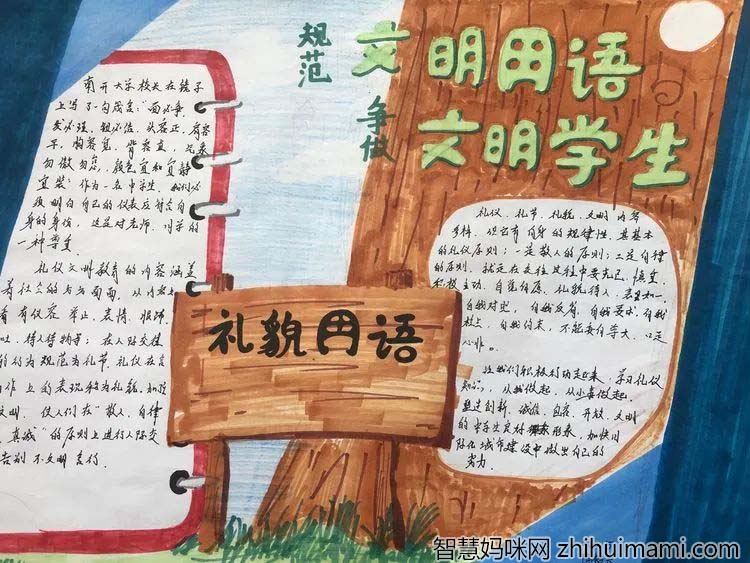 规范 文明用语
争做 文明学生
南开大学校长在镜子
上写了一句箴言:“面必净,
发必理,钮必结,头容正,肩容
平,胸容宽,背容直,气象
勿傲勿怠,颜色宜和宜静
宜装”作为一名中学生,我们必
须明白自己的仪表应符合自
身的身份,这是对老师、同学的
一种尊重
礼仪文明教育的内容涵盖
着社会的方方面面,从内容上
看有仪容、举止、表情、服饰、
吐、待人待物等;在人际交往
的行为规范为礼节,礼仪在言
动作上的表现称为礼貌。加强
文明,使人们在“敬人、自律
真诚”的原则上进行人际交
告别不文明言行
礼貌用语
礼仪、礼节、礼貌、文明内容
多样,但它有自身的规律性,其基本
的礼仪原则:一是敬人的原则;二是自律
的原则,就是在交往过程中要克己、慎重、
积极主动、自觉自愿、礼貌待人、表里如一
自我对照,自我反省,自我要求,自我
检点,自我约束,不能妄自尊大,口是
心非。
让我们积极行动起来,学习礼仪
知识,从我做起,从小事做起,
塑造创新、诚信、包容、开放、文明
的中学生良好形象,加快国
际化城市建设中做出自己的
努力
智慧妈咪网 zhihuimami.com